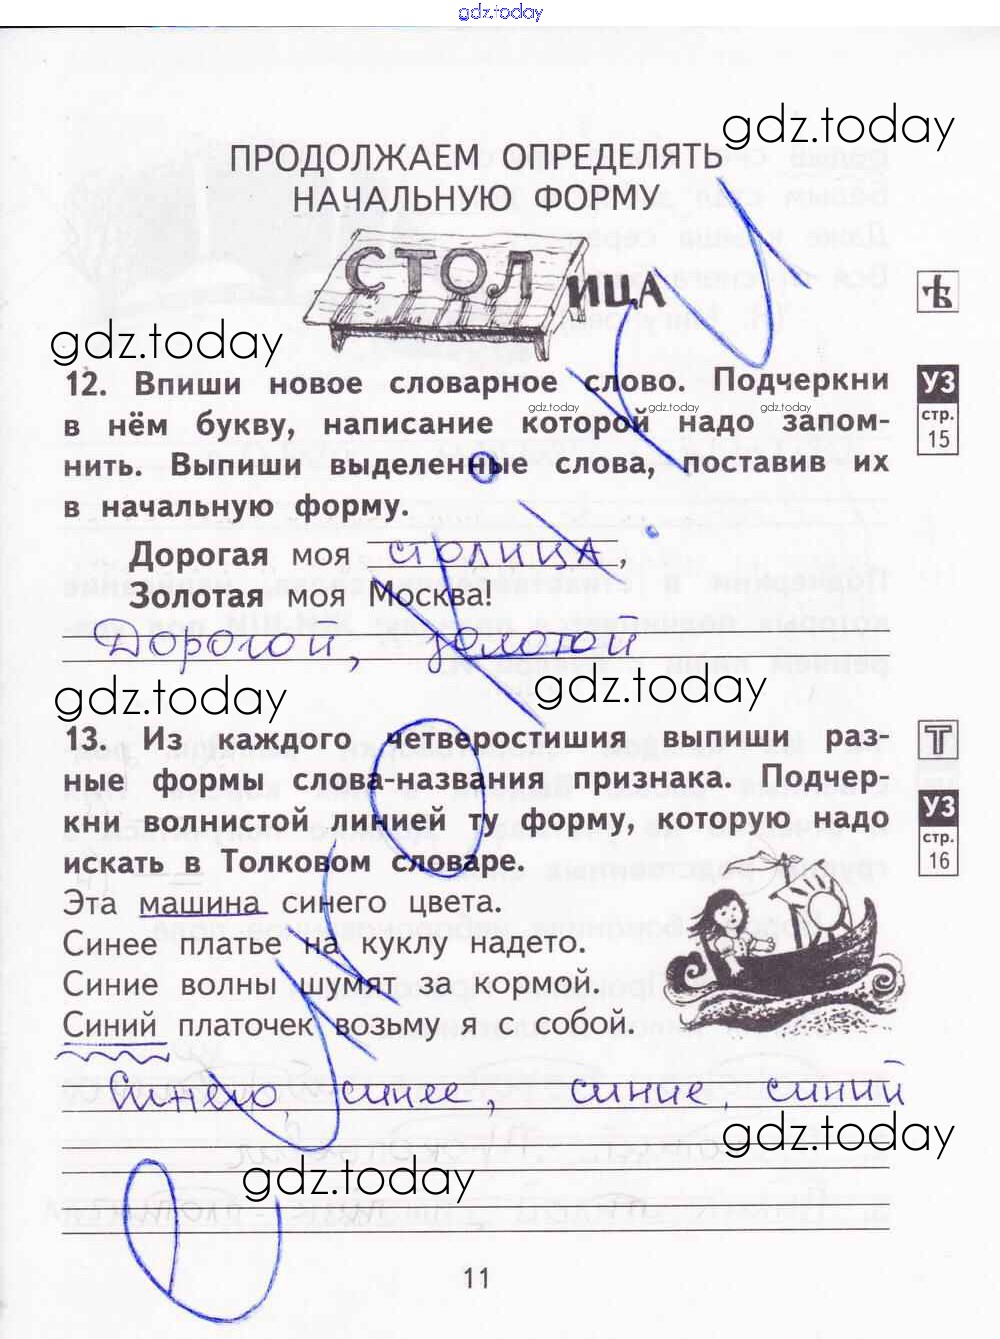 gdz.today
gdz.today
ПРОДОЛЖАЕМ ОПРЕДЕЛЯТЬ
НАЧАЛЬНУЮ ФОРМУ
СТОЛ
ИЦА
gdz.today
12. Впиши новое словарное слово. Подчеркни
УЗ
gdz.today gdz.today gdz.today
в нём букву, написание которой надо запом-
стр.
15
нить. Выпиши выделенные слова, поставив их
в начальную форму.
Дорогая моя столица,
Золотая моя Москва!
Дорогой, золотой
gdz.today gdz.today
13. Из каждого четверостишия выпиши раз-
Т
ные формы слова-названия признака. Подчер-
кни волнистой линией ту форму, которую надо
УЗ
стр.
16
искать в Толковом словаре.
Эта машина синего цвета.
Синее платье на куклу надето.
Синие волны шумят за кормой.
Синий платочек возьму я с собой.
Синего, синее, синие, синий
gdz.today
gdz.today
11